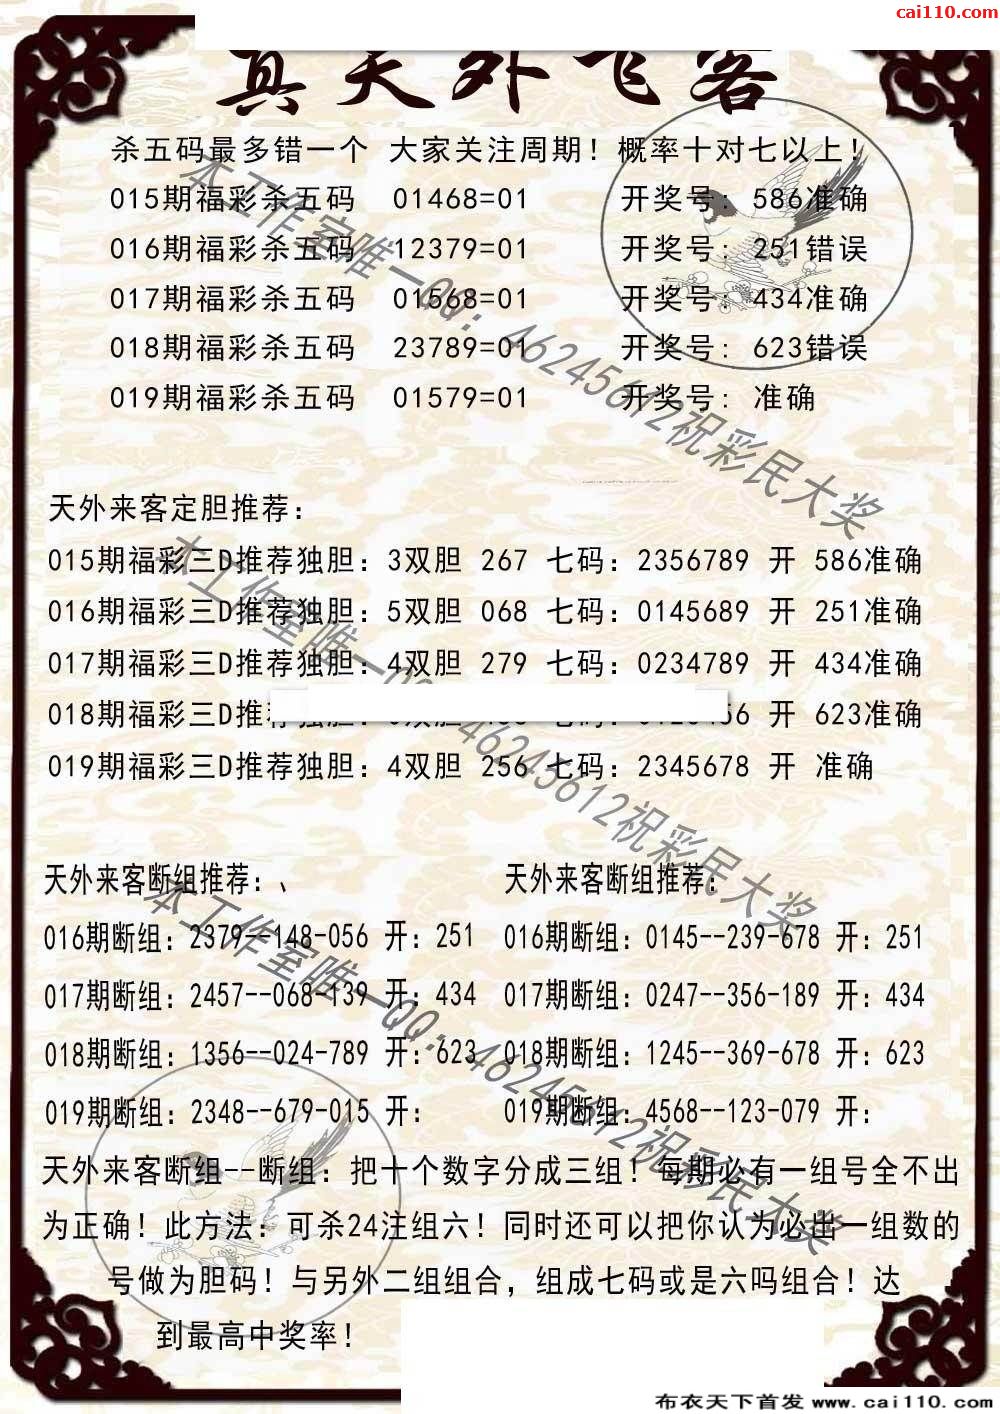 cai110.com
真天外飞客
杀五码最多错一个 大家关注周期！概率十对七以上！
015期福彩杀五码 01468=01 开奖号: 586准确
016期福彩杀五码 12379=01 开奖号: 251错误
017期福彩杀五码 01568=01 开奖号: 434准确
018期福彩杀五码 23789=01 开奖号: 623错误
019期福彩杀五码 01579=01 开奖号: 准确
天外来客定胆推荐：
015期福彩三D推荐独胆：3双胆 267 七码：2356789 开 586准确
016期福彩三D推荐独胆：5双胆 068 七码：0145689 开 251准确
017期福彩三D推荐独胆：4双胆 279 七码：0234789 开 434准确
018期福彩三D推荐独胆： 双胆 七码： 56 开 623准确
019期福彩三D推荐独胆：4双胆 256 七码：2345678 开 准确
天外来客断组推荐：、 天外来客断组推荐：
016期断组：2379--148-056 开：251 016期断组：0145--239-678 开：251
017期断组：2457--068-139 开：434 017期断组：0247--356-189 开：434
018期断组：1356--024-789 开：623 018期断组：1245--369-678 开：623
019期断组：2348--679-015 开： 019期断组：4568--123-079 开：
天外来客断组--断组：把十个数字分成三组！每期必有一组号全不出
为正确！此方法：可杀24注组六！同时还可以把你认为必出一组数的
号做为胆码！与另外二组组合，组成七码或是六吗组合！达
到最高中奖率！
本工作室唯一QQ：46245612祝彩民大奖
本工作室唯一QQ：46245612祝彩民大奖
本工作室唯一QQ：46245612祝彩民大奖
布衣天下首发 www.cai110.com